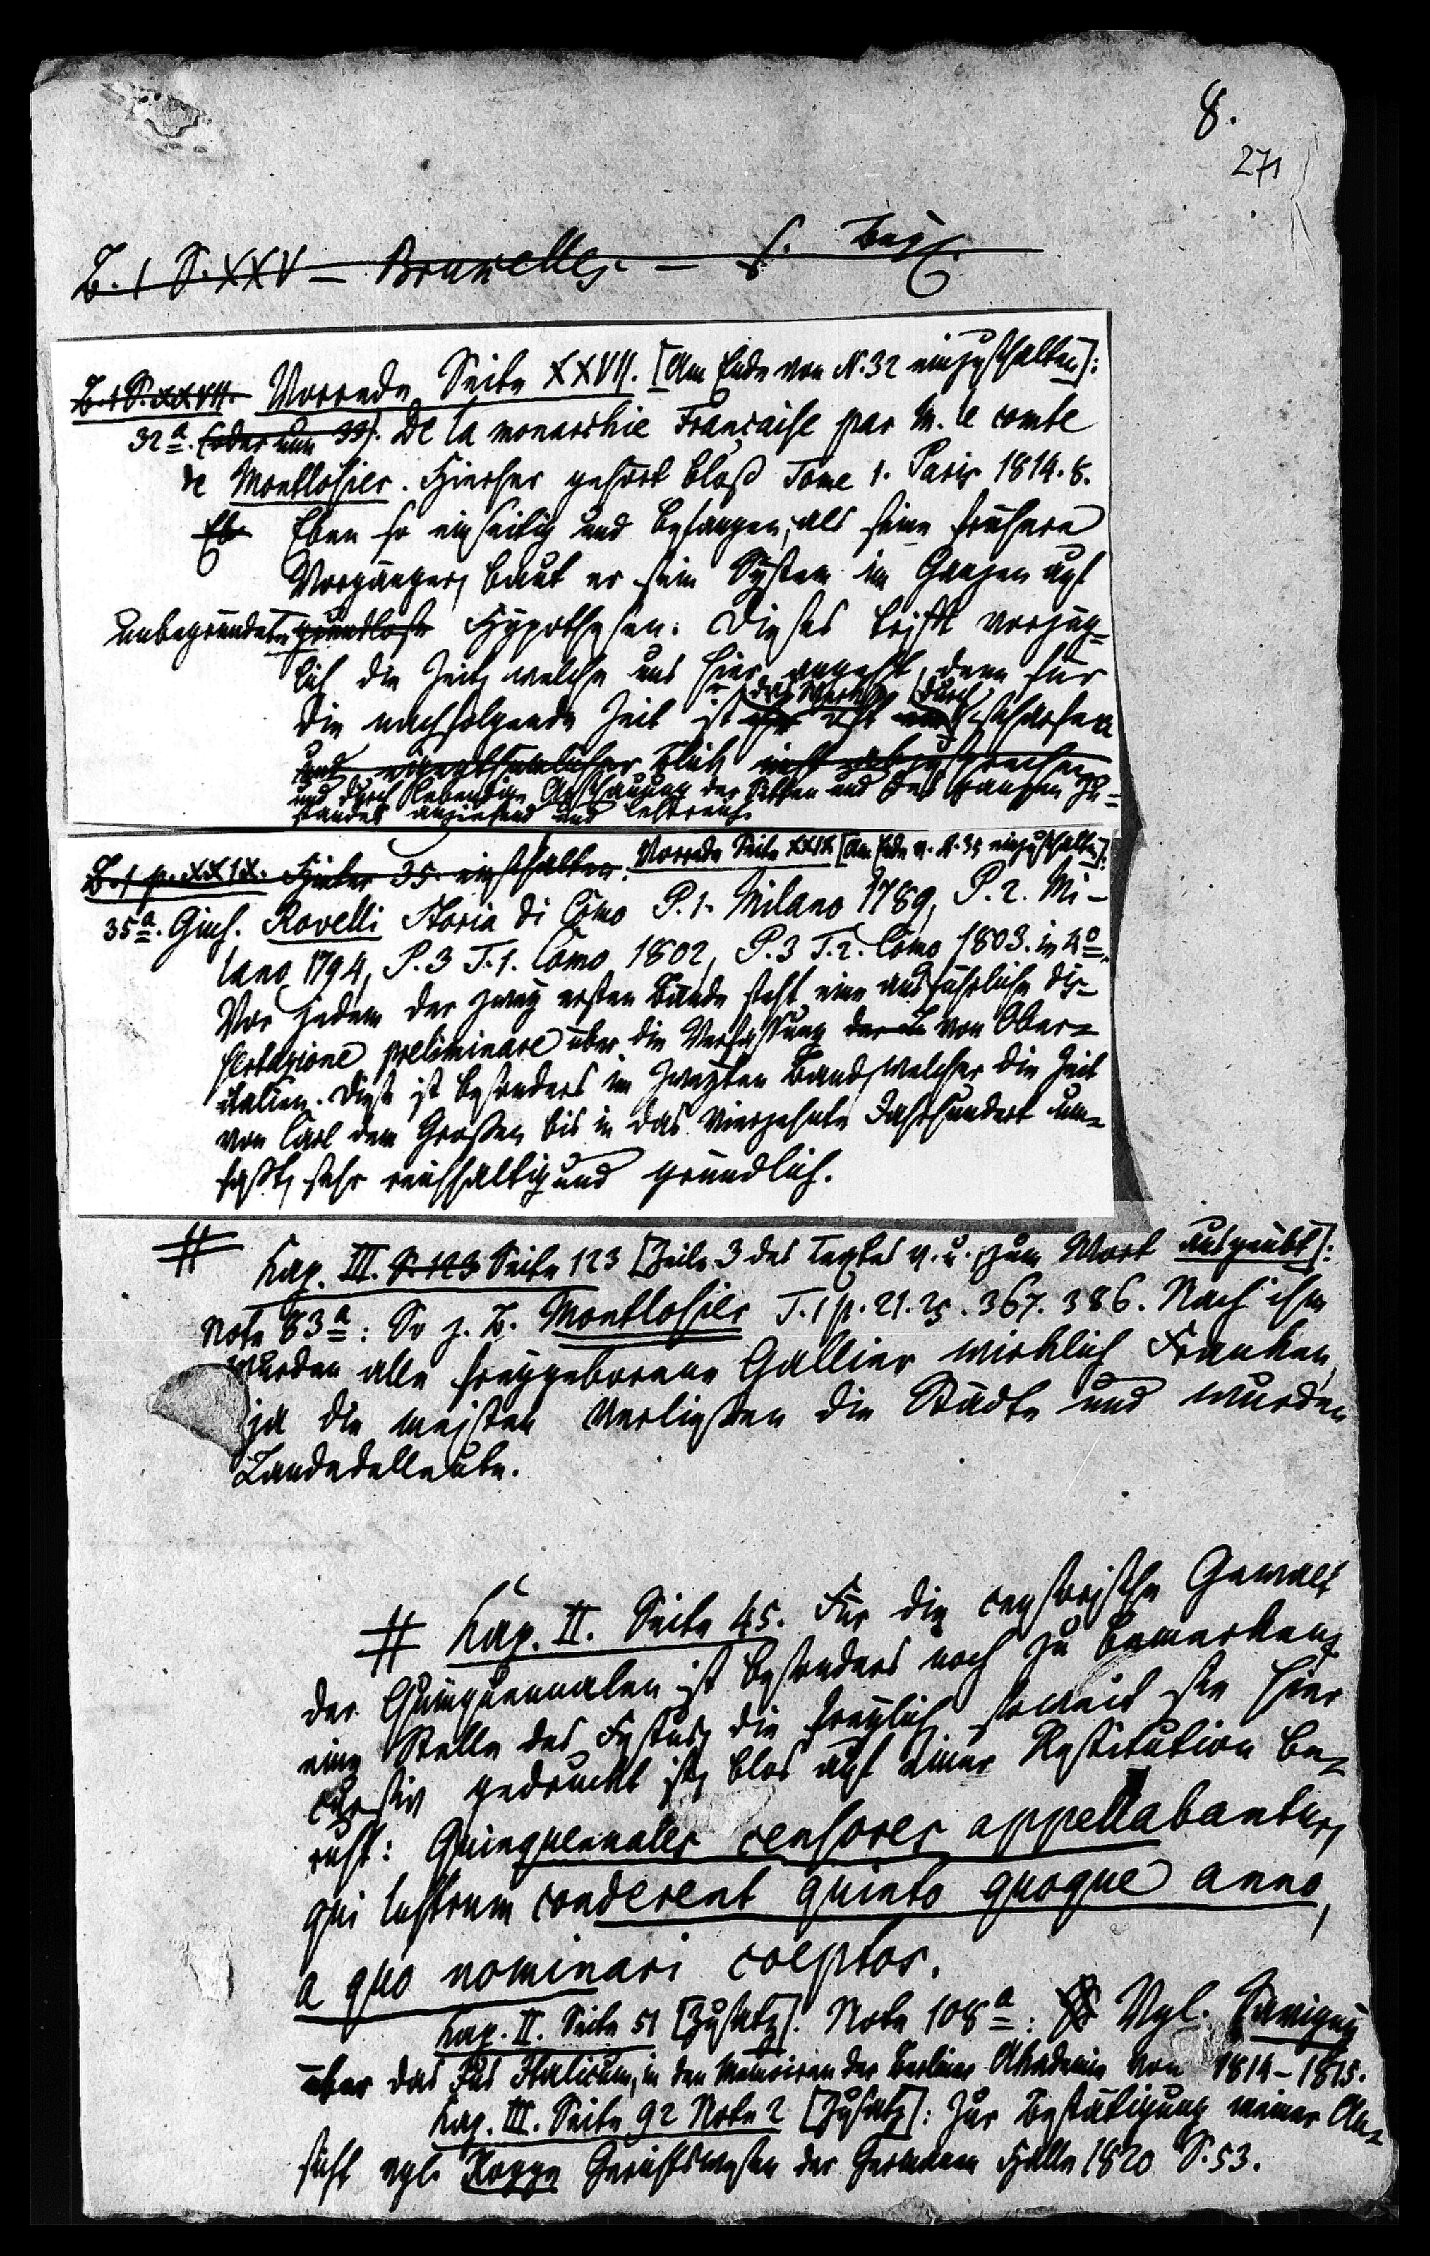 8.
271
B. 1 S. XXV — Bruxelles — s.
B. 1 S. XXVII. Vorrede Seite XXVII. [Am Ende von N. 32 einzuschalten]:
32a. (oder nun 33). De la monarchie Française par M. le comte
de Montlosier. Hierher gehört bloß Tome 1. Paris 1814. 8.
Eb Eben so einseitig und befangen, als seine frühern
Vorgänger, baut er sein System im Ganzen auf
unbegründete grundlose Hypothesen. Dieses trifft vorzüg-
lich die Zeit, welche uns hier angeht, denn für
die nachfolgende Zeit ist das Werk durch scharfen
und eigenthümlicher Blick nicht
und durch lebendige Anschauung der Sitten und des ganzen Zu-
standes anziehend und lehrreich.
B. 1 p. XXIX. Hinter 35. einschalten. Vorrede Seite XXIX [Am Ende v. N. 35 einzuschalten]:
35a. Gius. Rovelli Storia di Como P. 1. Milano 1789, P. 2. Mi-
lano 1794, P. 3 T. 1. Como 1802, P. 3 T. 2. Como 1803. in 4o.
Vor jedem der zwey ersten Bände steht eine ausführliche dis-
sertazione preliminare über die Verfassung von Ober-
italien. Diese ist besonders im zweyten Band, welcher die Zeit
von Carl dem Großen bis in das vierzehnte Jahrhundert um-
faßt, sehr reichhaltig und gründlich.
# Kap. III. S. 123 Seite 123 [Zeile 3 des Textes v. u. zum Wort ausgeübt]:
Note 83a: So z. B. Montlosier T. 1 p. 21. 25. 367. 386. Nach ihm
wurden alle freygeborene Gallier wirklich Franken,
ja die meisten verließen die Städte und wurden
Landedelleute.
# Kap. II. Seite 45. Für die censorische Gewalt
der Quinquennalen ist besonders noch zu bemerken
eine Stelle des Festus, die freylich, soweit sie hier
cursiv gedruckt ist, blos auf einer Restitution be-
ruht: Quinquennales censores appellabantur,
qui lustrum conderent quinto quoque anno,
a quo nominari coeptos.
Kap. II. Seite 51 [Zusatz]. Note 108a: Vgl. Savigny
über das Jus Italicum, in den Memoiren der Berliner Akademie von 1814–1815.
Kap. III. Seite 92 Note 2 [Zusatz]: Zur Bestätigung meiner An-
sicht vgl. Rogge Gerichtswesen der Germanen Halle 1820 S. 53.